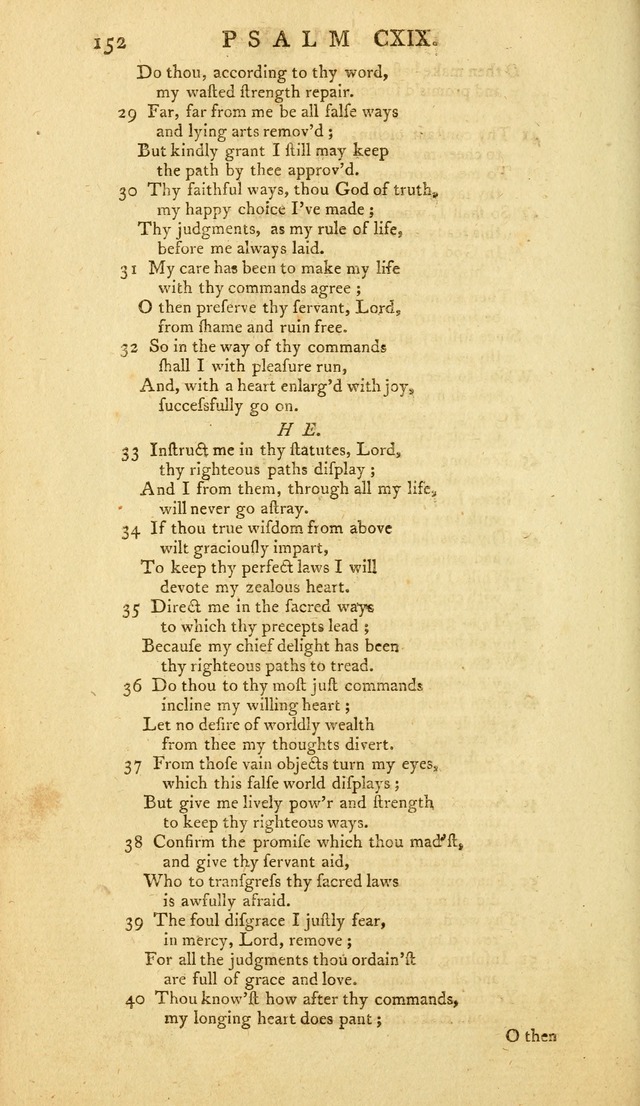 152 PSALM CXIX.
Do thou, according to thy word,
my waſted ſtrength repair.
29 Far, far from me be all falſe ways
and lying arts remov'd ;
But kindly grant I ſtill may keep
the path by thee approv'd.
30 Thy faithful ways, thou God of truth,
my happy choice I've made ;
Thy judgments, as my rule of life,
before me always laid.
31 My care has been to make my life
with thy commands agree ;
O then preſerve thy ſervant, Lord,
from ſhame and ruin free.
32 So in the way of thy commands
ſhall I with pleaſure run,
And, with a heart enlarg'd with joy,
ſucceſsfully go on.
H E.
33 Inſtruct me in thy ſtatutes, Lord,
thy righteous paths diſplay ;
And I from them, through all my life,
will never go aſtray.
34 If thou true wiſdom from above
wilt graciouſly impart,
To keep thy perfect laws I will
devote my zealous heart.
35 Direct me in the ſacred ways
to which thy precepts lead ;
Becauſe my chief delight has been
thy righteous paths to tread.
36 Do thou to thy moſt juſt commands
incline my willing heart ;
Let no deſire of worldly wealth
from thee my thoughts divert.
37 From thoſe vain objects turn my eyes,
which this falſe world diſplays ;
But give me lively pow'r and ſtrength
to keep thy righteous ways.
38 Confirm the promiſe which thou mad'ſt,
and give thy ſervant aid,
Who to tranſgreſs thy ſacred laws
is awfully afraid.
39 The foul diſgrace I juſtly fear,
in mercy, Lord, remove ;
For all the judgments thou ordain'ſt
are full of grace and love.
40 Thou know'ſt how after thy commands,
my longing heart does pant ;
O then